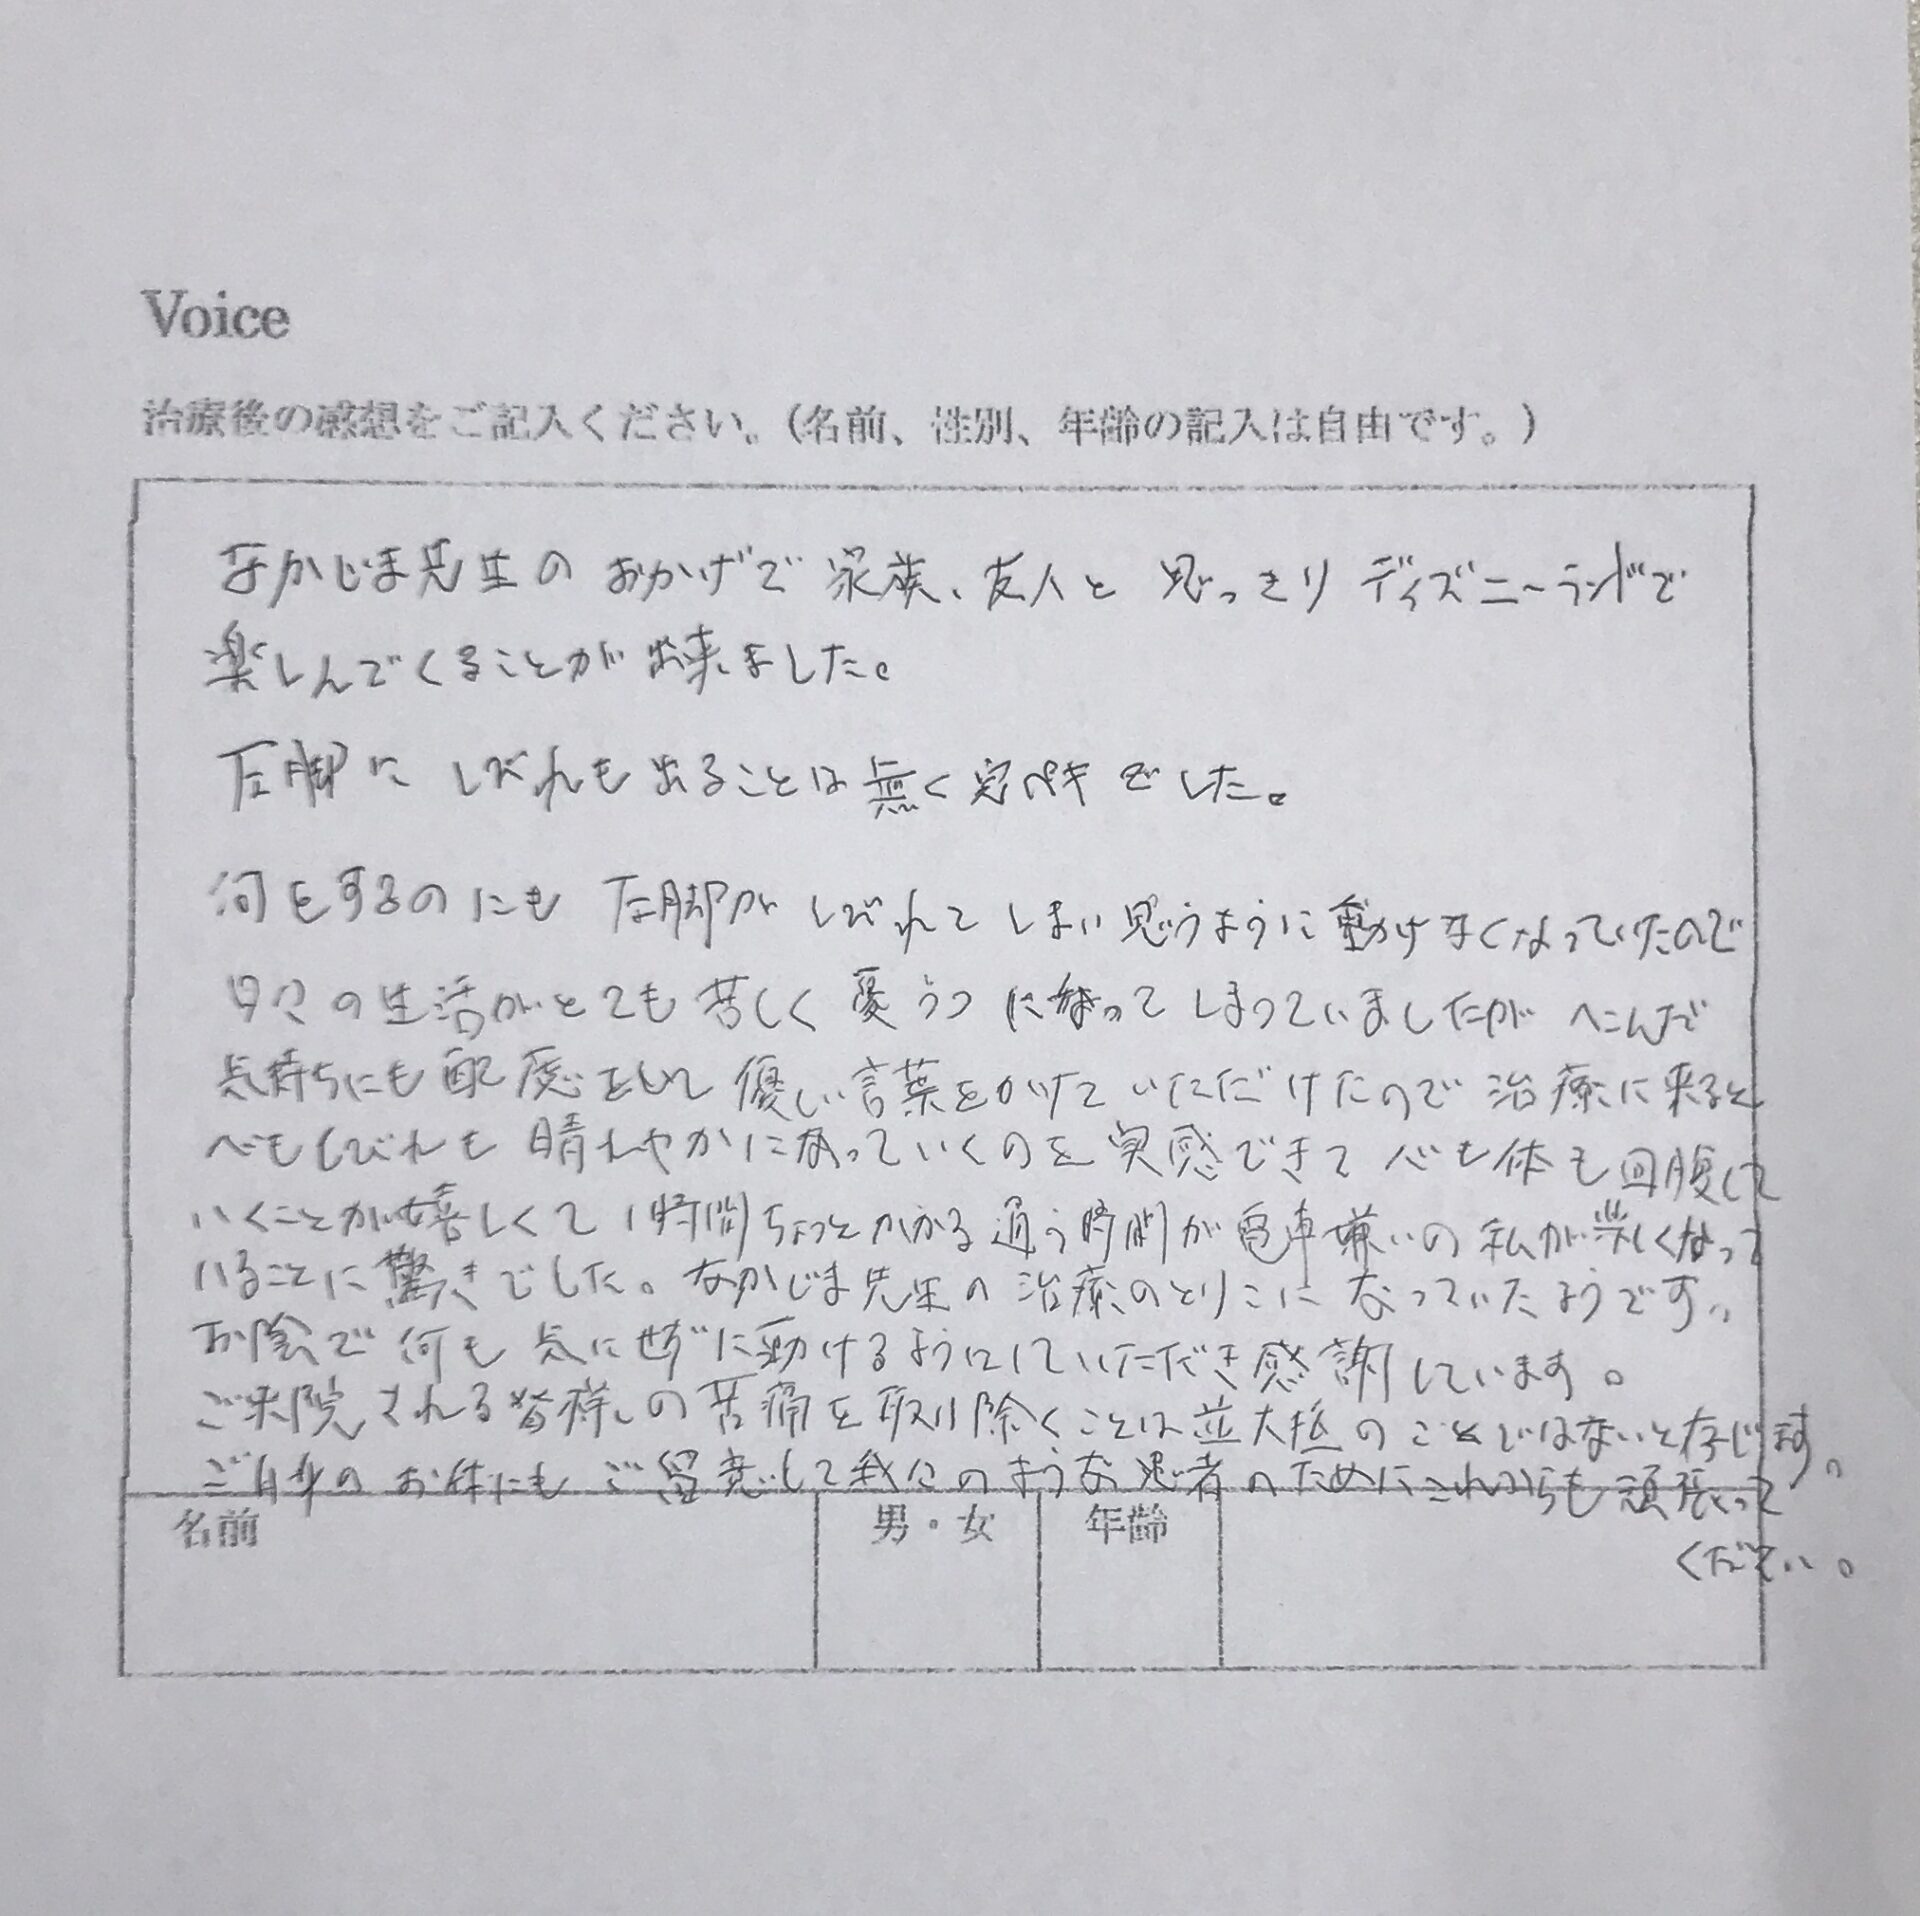 Voice
治療後の感想をご記入ください。（名前、性別、年齢の記入は自由です。）
なかじま先生の おかげで 家族、友人と 思っきり ディズニーランドで
楽しんでくることが出来ました。
左脚に しびれも出ることは無く完ペキでした。
何をするのにも 左脚が しびれて しまい思うように動けなくなっていたので
日々の生活がとても苦しく憂うつになってしまっていましたが へこんだ
気持ちにも配慮をして優しい言葉をかけていただけたので治療に来ると
心もしびれも晴れやかになっていくのを実感できて心も体も回復して
いくことが嬉しくて1時間ちょっとかかる通う時間が電車嫌いの私が楽しくなって
いることに驚きでした。なかじま先生の治療のとりこになっていたようです。
お陰で何も気にせずに動けるようにしていただき感謝しています。
ご来院される皆様の苦痛を取り除くことは並大抵のことではないと存じます。
ご自身のお体にもご留意して我々のような患者のためにこれからも頑張って
ください。
名前 男・女 年齢